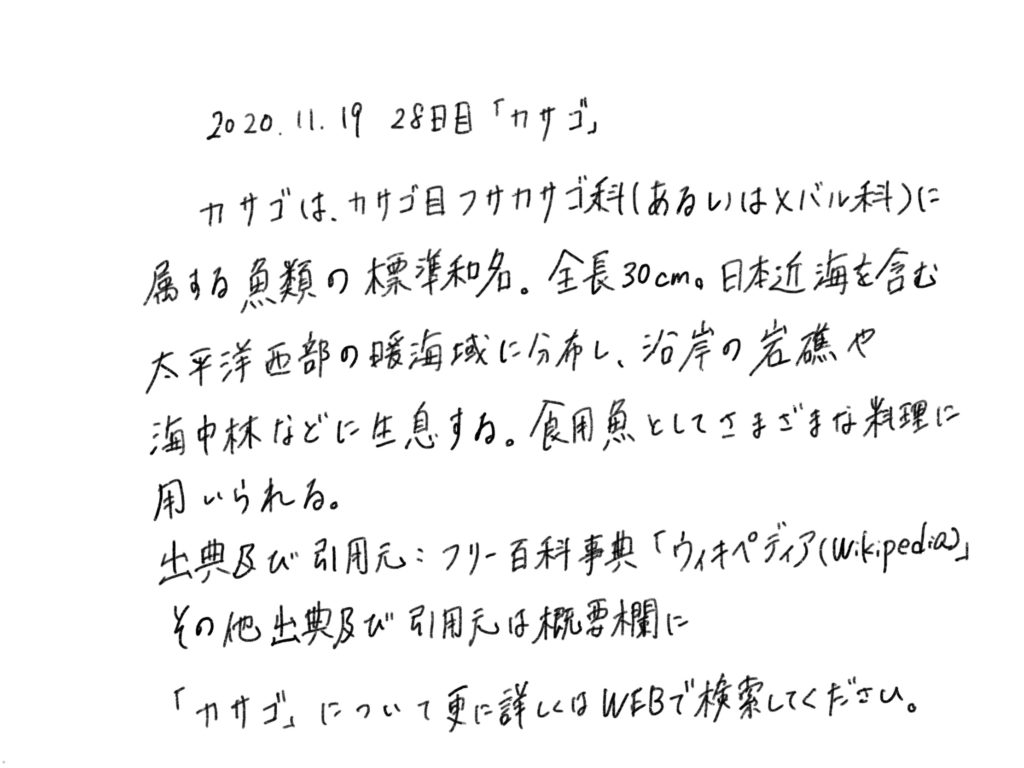 2020.11.19 28日目「カサゴ」
カサゴは、カサゴ目フサカサゴ科(あるいはメバル科)に
属する魚類の標準和名。全長30cm。日本近海を含む
太平洋西部の暖海域に分布し、沿岸の岩礁や
海中林などに生息する。食用魚としてさまざまな料理に
用いられる。
出典及び引用元:フリー百科事典「ウィキペディア(Wikipedia)」
その他出典及び引用元は概要欄に
「カサゴ」について更に詳しくはWEBで検索してください。